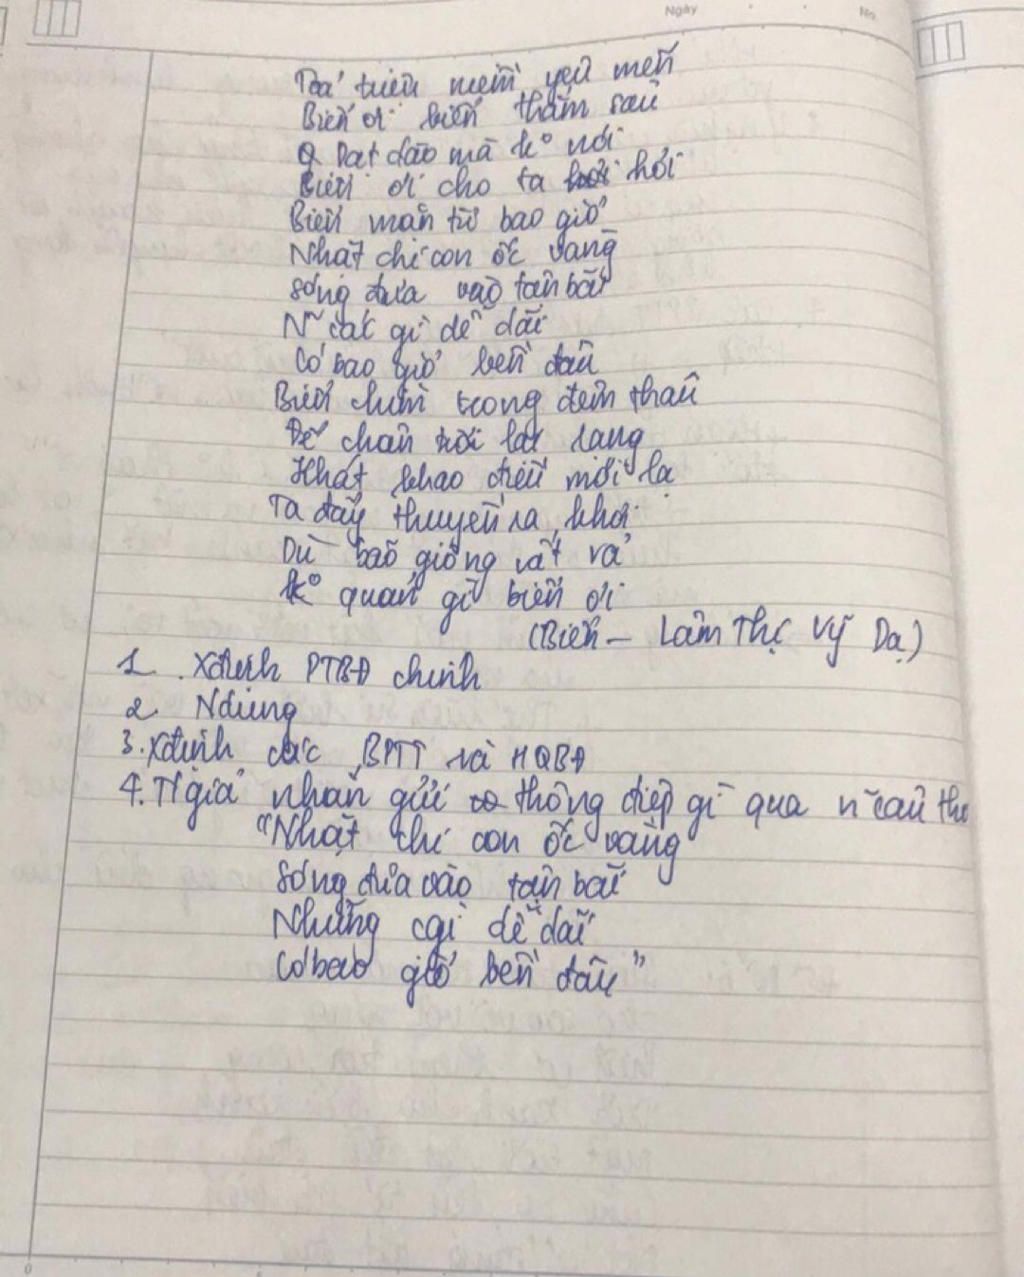 Ngày
No.
Toả triệu niềm yêu mến
Biển ơi biển thẳm sâu
Dạt dào mà ko nói
Biển ơi cho ta hỏi
Biển mặn từ bao giờ
Nhặt chi con ốc vàng
Sóng đưa vào tận bãi
N~ cái gì dễ dãi
Có bao giờ bền đâu
Biển chìm trong đêm thâu
Để chân trời lại rạng
Khát khao điều mới lạ
Ta đẩy thuyền ra khơi
Dù bão giông vất vả
ko quản gì biển ơi
(Biển – Lâm Thị Vỹ Dạ)
1. Xđịnh PTBĐ chính
2. Ndung
3. Xđịnh các BPTT và HQBĐ
4. T/giả nhắn gửi thông điệp gì qua n~ câu thơ
"Nhặt chi con ốc vàng
Sóng đưa vào tận bãi
Những cgì dễ dãi
Có bao giờ bền đâu"